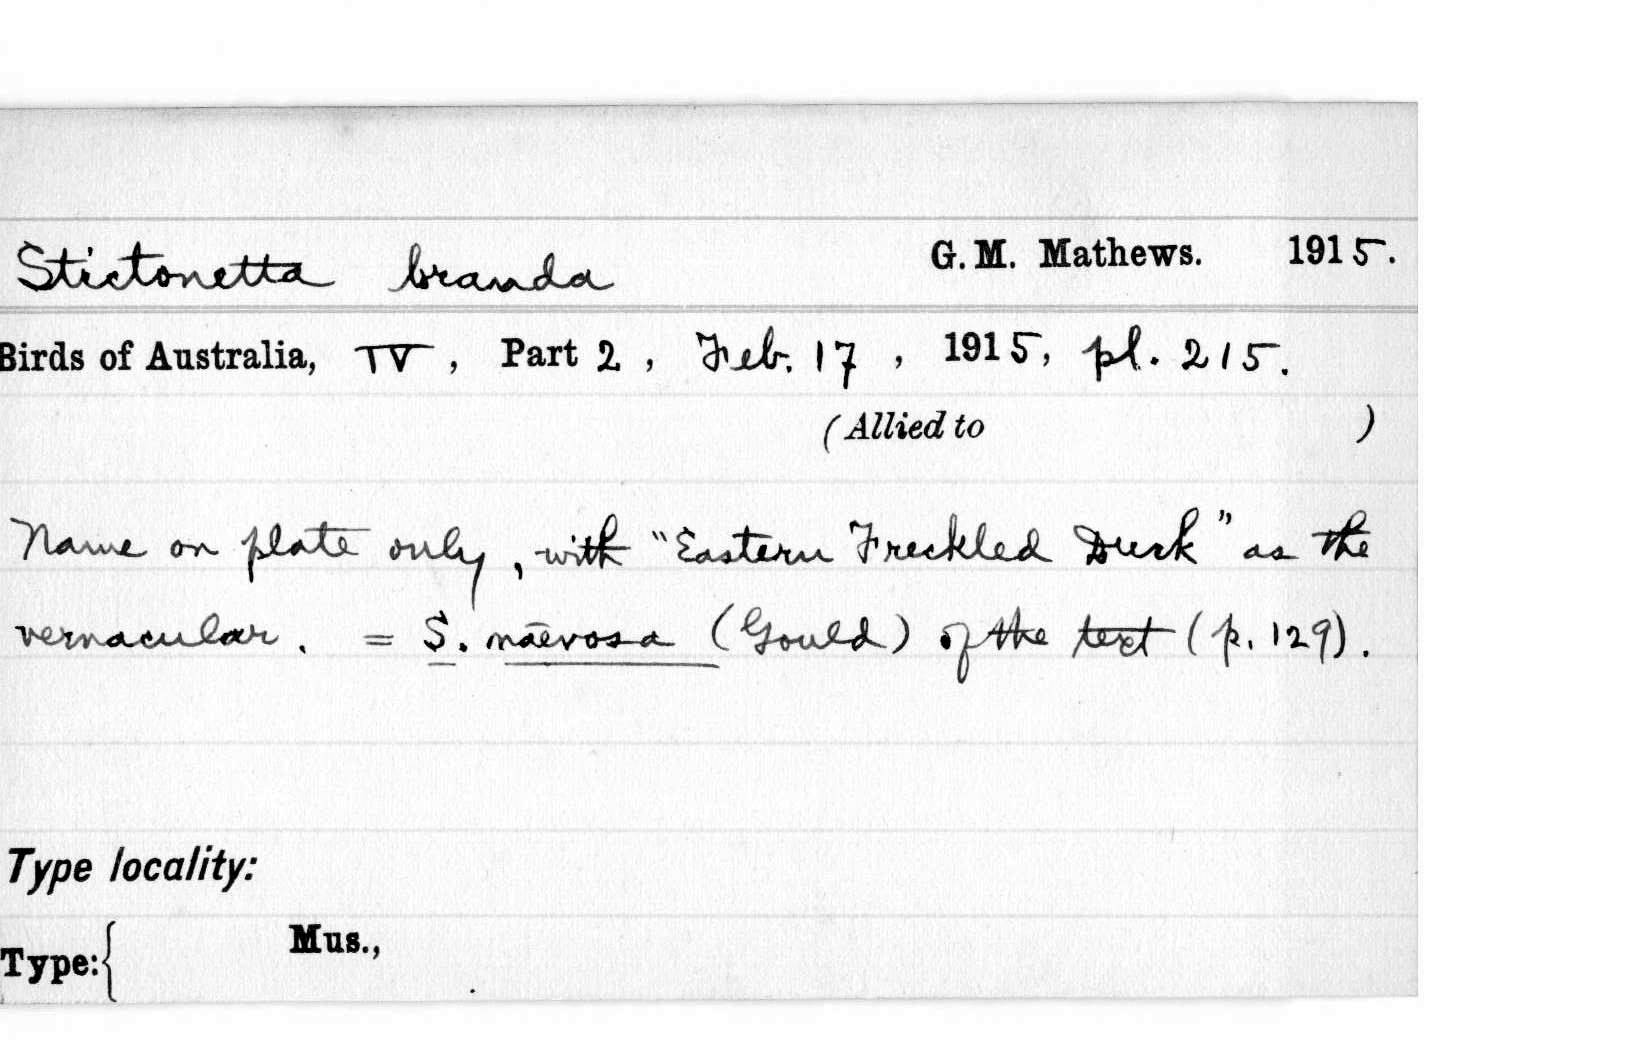 Stictonetta branda G. M. Mathews. 1915.
Birds of Australia, IV, Part 2, Feb. 17, 1915, pl. 215.
(Allied to )
Name on plate only, with "Eastern Freckled Duck" as the
vernacular. = S. naevosa (Gould) of the text (p. 129).
Type locality:
Type:{ Mus.,